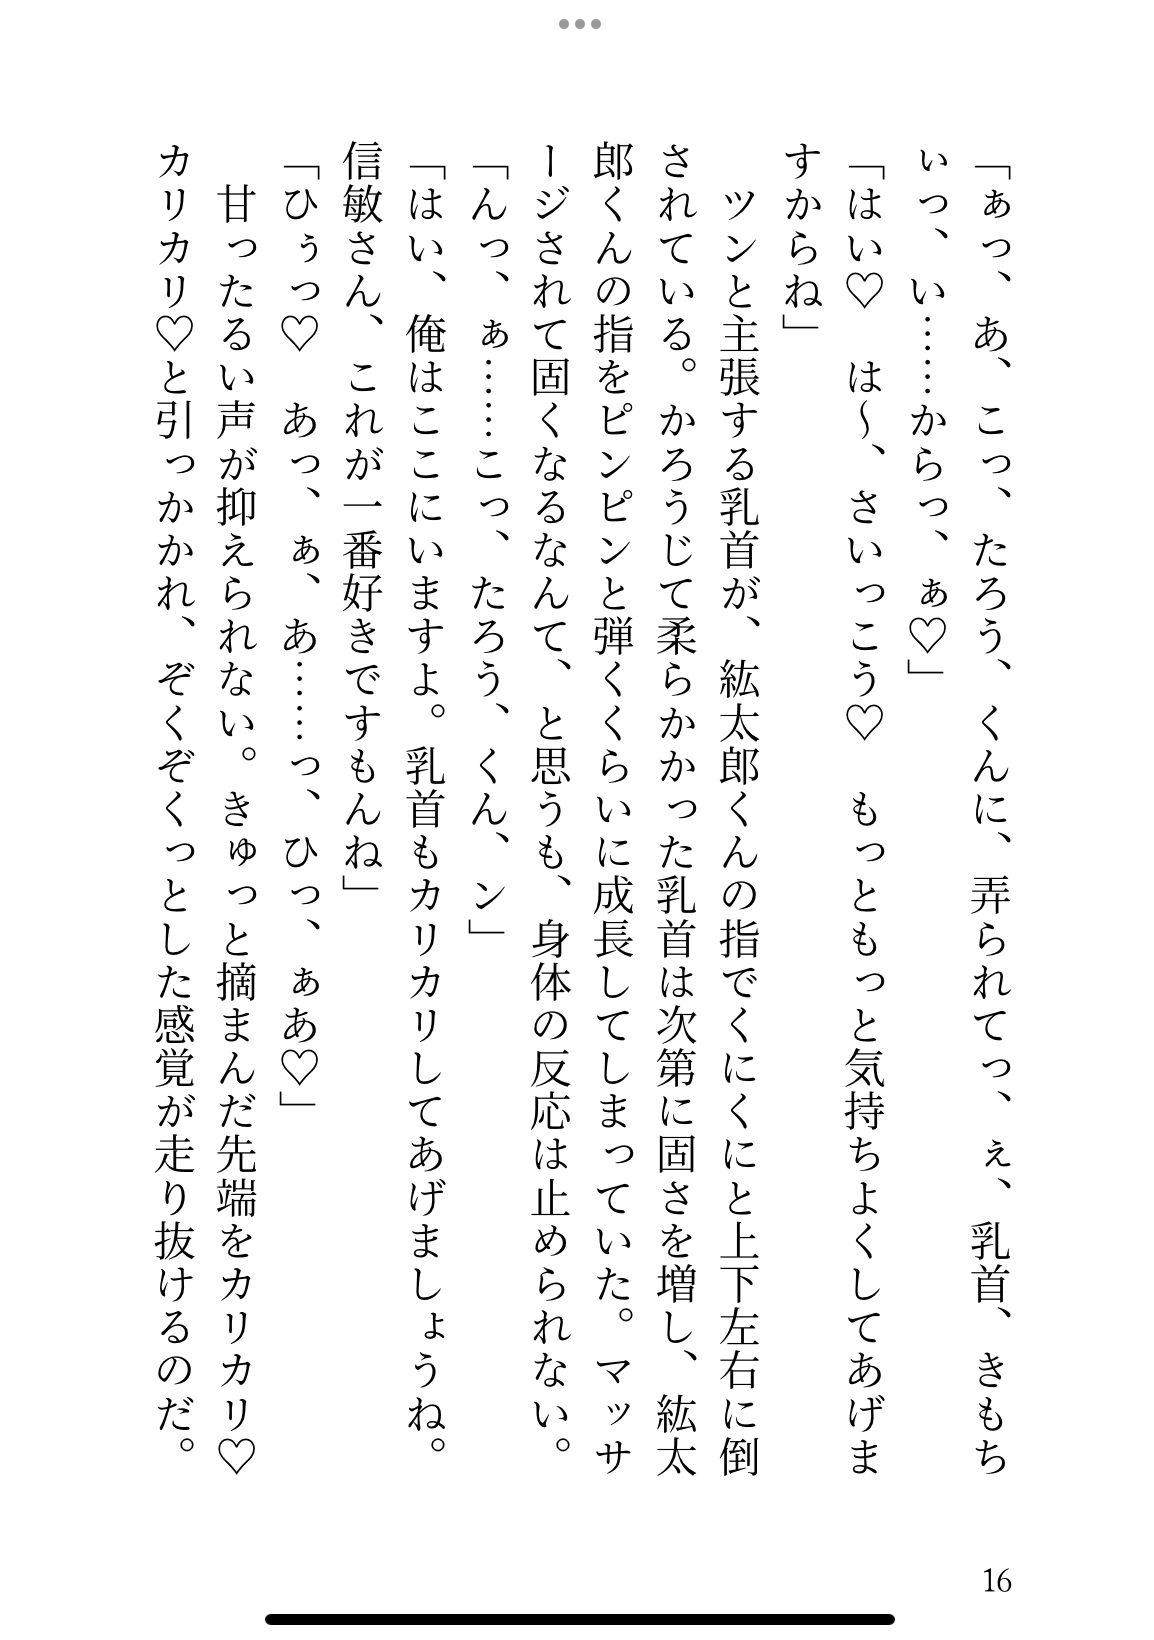 「ぁっ、あ、こっ、たろう、くんに、弄られてっ、ぇ、乳首、きもち
ぃっ、い……からっ、ぁ♡」
「はい♡　は〜、さいっこう♡　もっともっと気持ちよくしてあげま
すからね」
　ツンと主張する乳首が、紘太郎くんの指でくにくにと上下左右に倒
されている。かろうじて柔らかかった乳首は次第に固さを増し、紘太
郎くんの指をピンピンと弾くくらいに成長してしまっていた。マッサ
ージされて固くなるなんて、と思うも、身体の反応は止められない。
「んっ、ぁ……こっ、たろう、くん、ン」
「はい、俺はここにいますよ。乳首もカリカリしてあげましょうね。
信敏さん、これが一番好きですもんね」
「ひぅっ♡　あっ、ぁ、あ……っ、ひっ、ぁあ♡」
　甘ったるい声が抑えられない。きゅっと摘まんだ先端をカリカリ♡
カリカリ♡と引っかかれ、ぞくぞくっとした感覚が走り抜けるのだ。
16